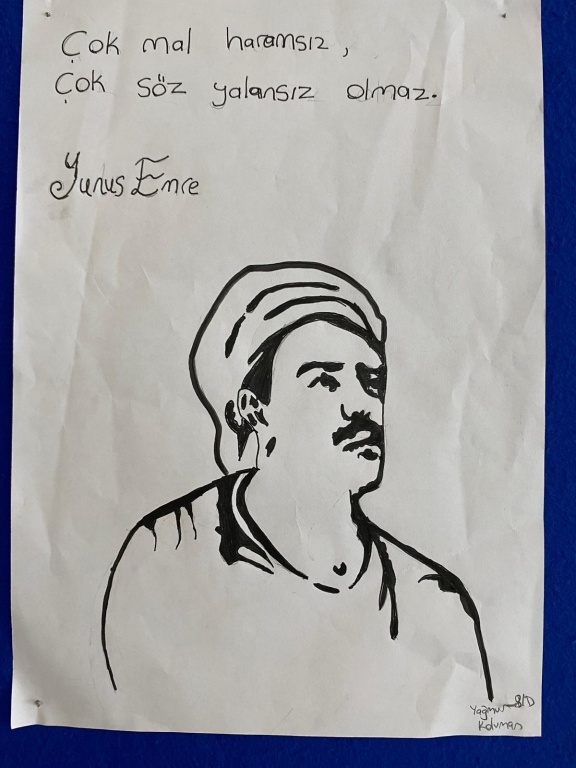 Çok mal haramsız,
Çok söz yalansız olmaz.
Yunus Emre
Yağmur 8/D